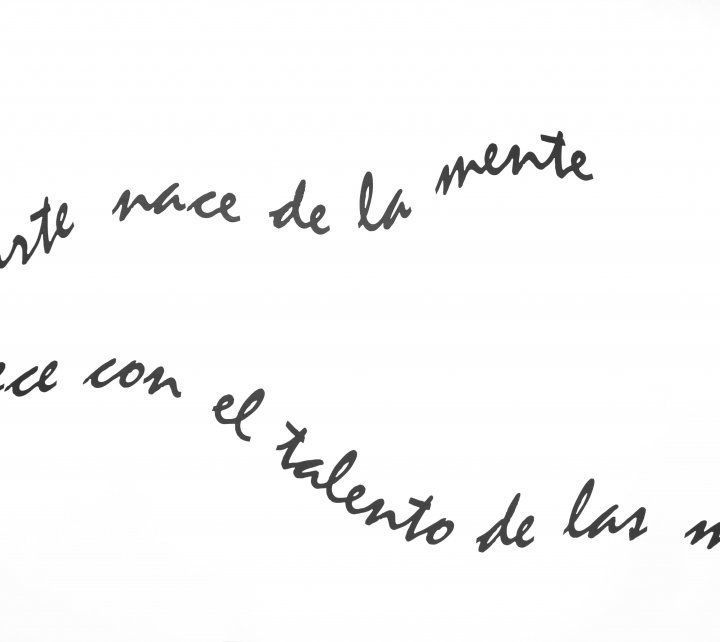 arte nace de la mente
ece con el talento de las m